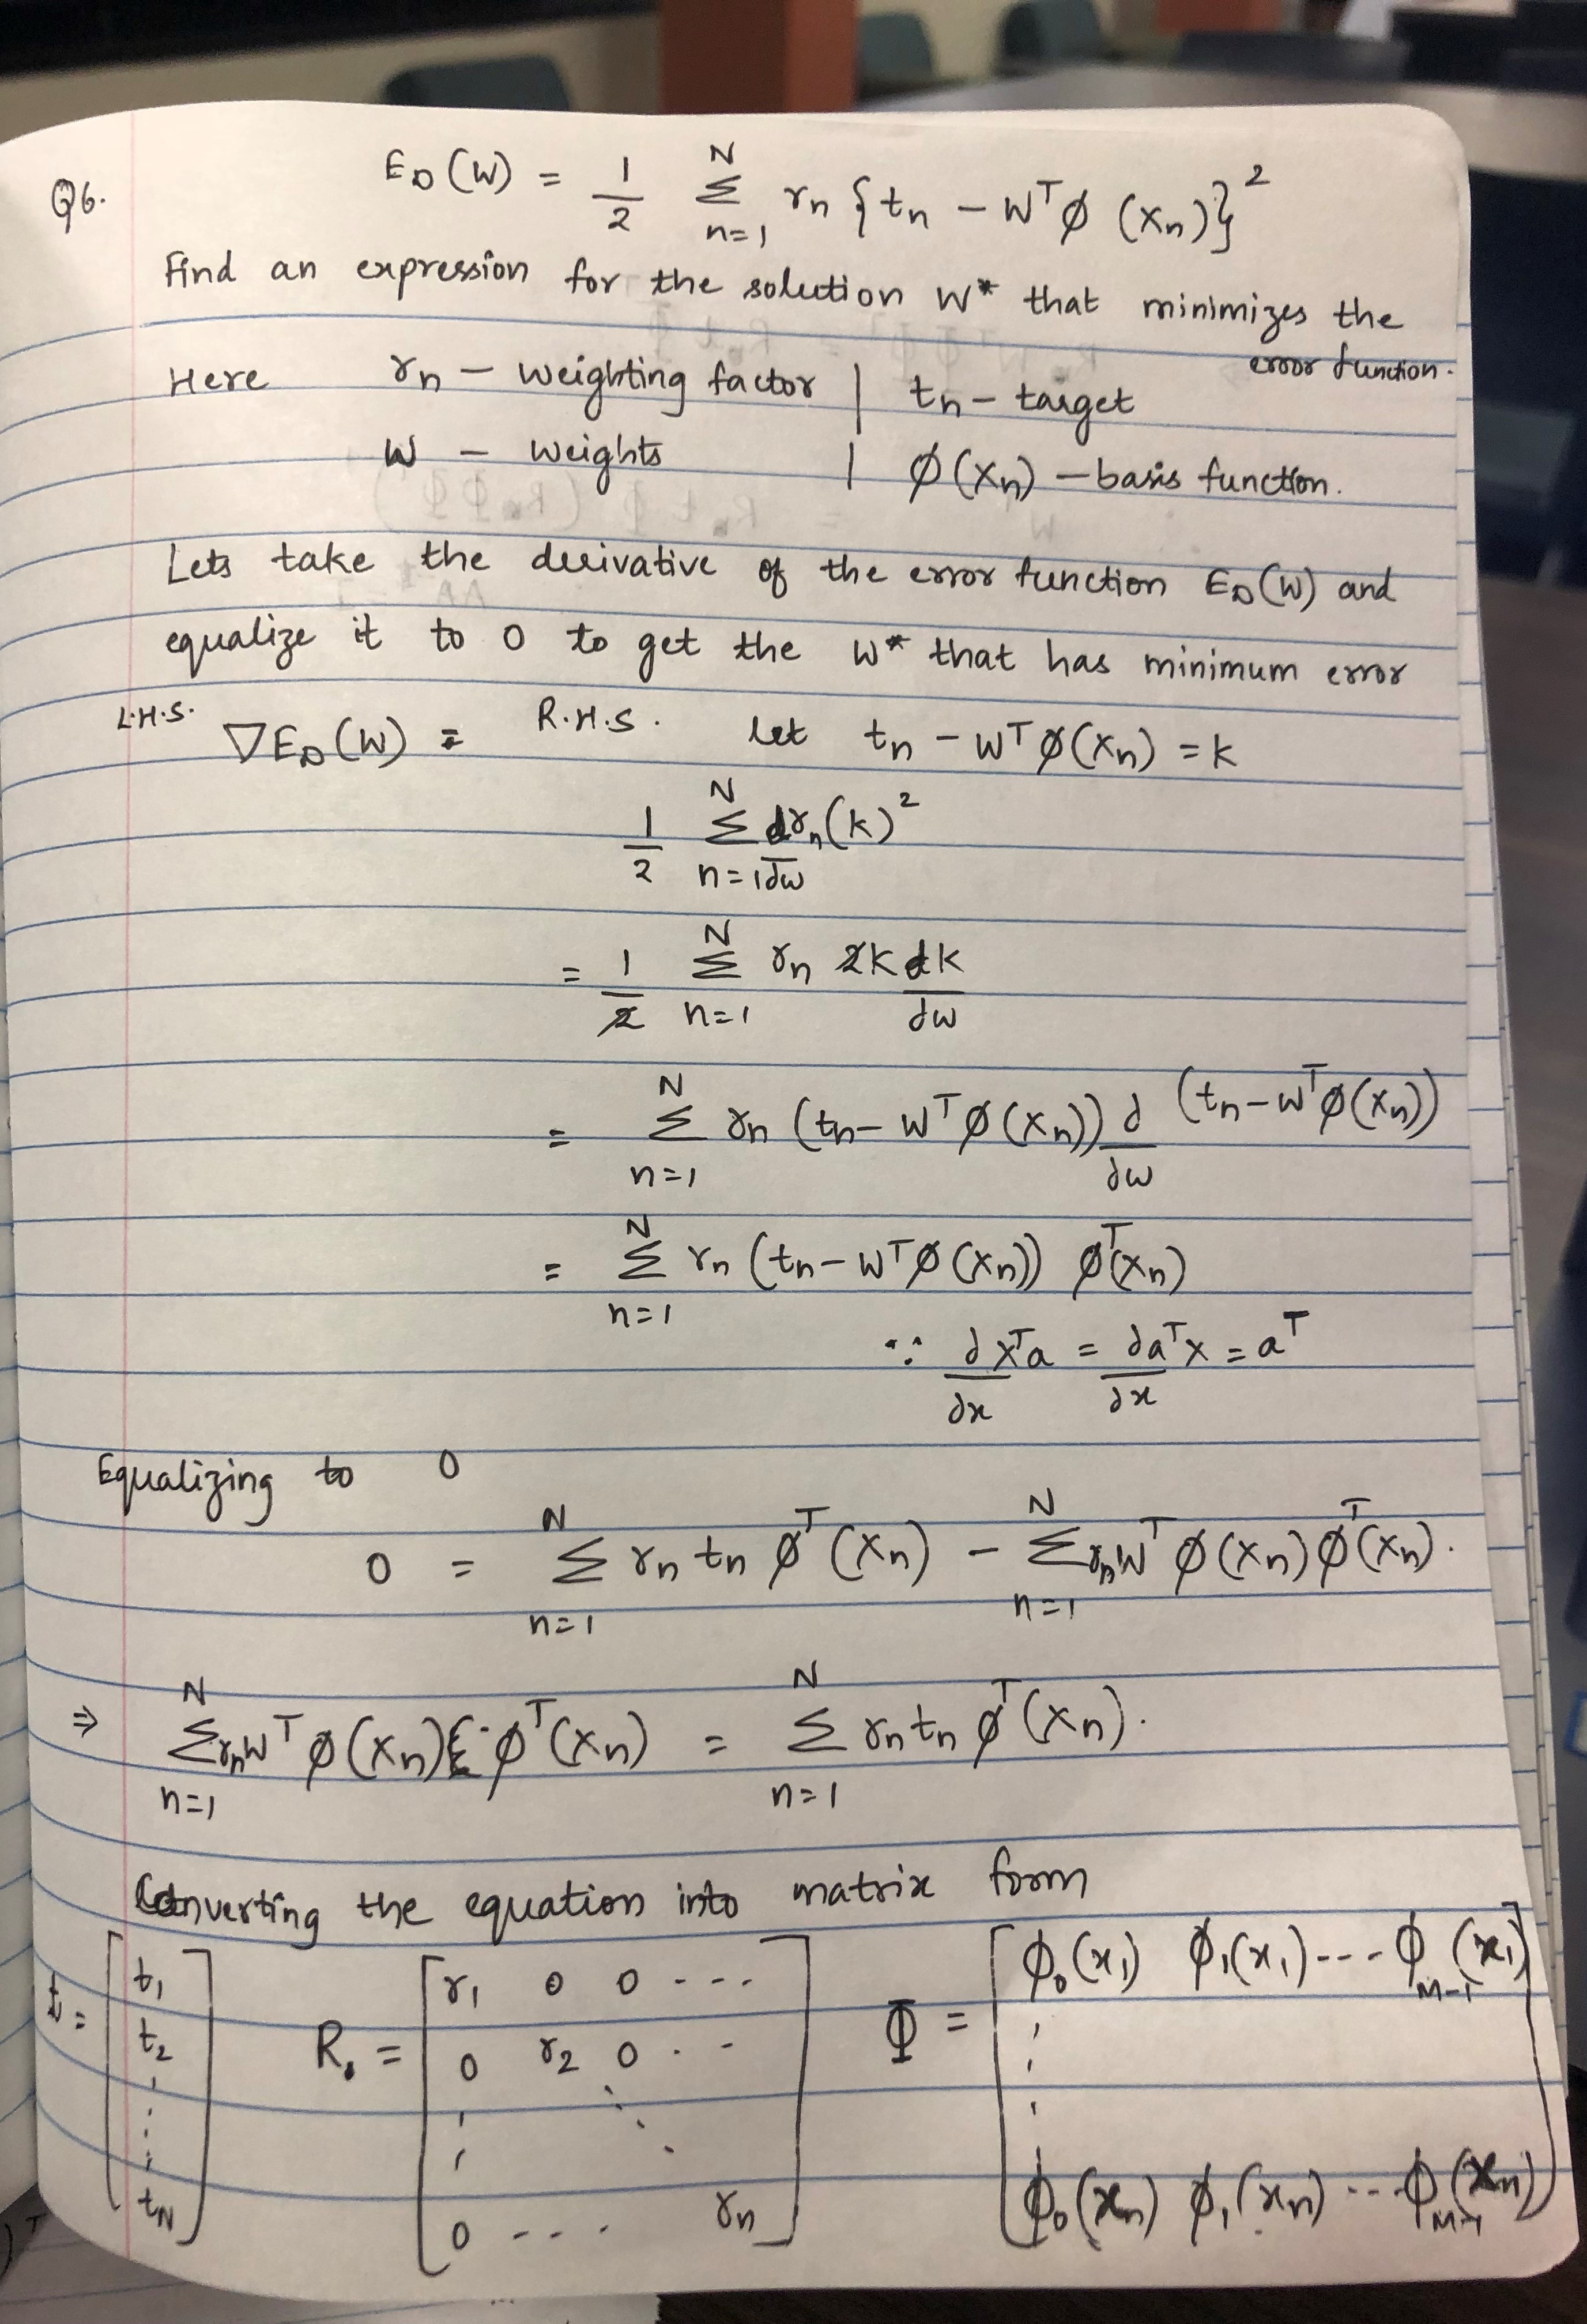 Q6. E_D(W) = 1/2 Σ_{n=1}^{N} r_n {t_n − W^T ϕ (x_n)}^2
Find an expression for the solution W* that minimizes the
error function.
Here r_n − weighting factor | t_n − target
W − weights | ϕ(x_n) − basis function.
Lets take the derivative of the error function E_D(W) and
equalize it to 0 to get the W* that has minimum error
L.H.S. R.H.S.
∇E_D(W) = let t_n − W^T ϕ(x_n) = k
1/2 Σ_{n=1}^{N} d/dw r_n(k)^2
= 1/2 Σ_{n=1}^{N} r_n 2k dk/dw
= Σ_{n=1}^{N} r_n (t_n − W^T ϕ(x_n)) d/dw (t_n − W^T ϕ(x_n))
= Σ_{n=1}^{N} r_n (t_n − W^T ϕ(x_n)) ϕ^T(x_n)
∵ ∂x^T a/∂x = ∂a^T x/∂x = a^T
Equalizing to 0
0 = Σ_{n=1}^{N} r_n t_n ϕ^T(x_n) − Σ_{n=1}^{N} r_n W^T ϕ(x_n) ϕ^T(x_n).
⇒ Σ_{n=1}^{N} r_n W^T ϕ(x_n) ϕ^T(x_n) = Σ_{n=1}^{N} r_n t_n ϕ^T(x_n).
Converting the equation into matrix form
t = [t_1 t_2 ⋮ t_N] R = [r_1 0 0 --- 0 r_2 0 . -- ⋮ ⋱ 0 --- r_n] Φ = [ϕ_0(x_1) ϕ_1(x_1) --- ϕ_{M-1}(x_1) ⋮ ϕ_0(x_n) ϕ_1(x_n) --- ϕ_{M-1}(x_n)]